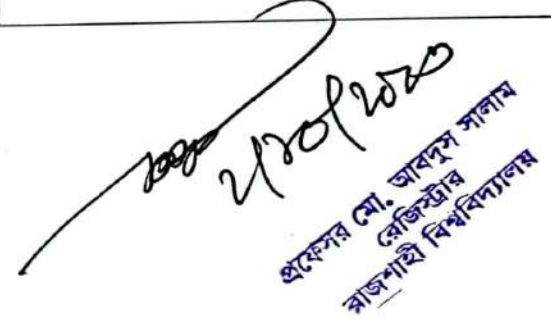 প্রফেসর মো. আবদুস সালাম
রেজিস্ট্রার
রাজশাহী বিশ্ববিদ্যালয়